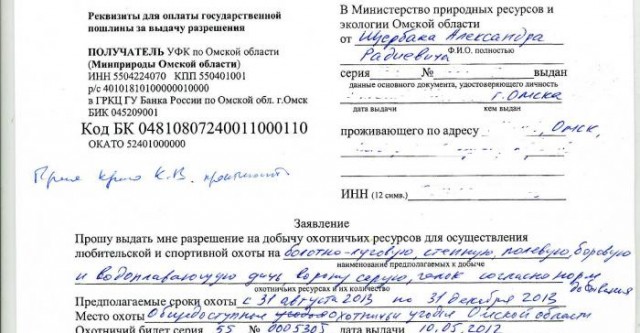 Реквизиты для оплаты государственной
пошлины за выдачу разрешения
ПОЛУЧАТЕЛЬ УФК по Омской области
(Минприроды Омской области)
ИНН 5504224070 КПП 550401001
р/с 40101810100000010000
в ГРКЦ ГУ Банка России по Омской обл. г.Омск
БИК 045209001
Код БК 04810807240011000110
ОКАТО 52401000000
В Министерство природных ресурсов и
экологии Омской области
от Щербака Александра
Ф.И.О. полностью
Радиевича
серия № выдан
данные основного документа, удостоверяющего личность
г. Омска
дата выдачи кем выдан
проживающего по адресу Омск,
ИНН (12 симв.)
Заявление
Прошу выдать мне разрешение на добычу охотничьих ресурсов для осуществления
любительской и спортивной охоты на болотно-луговую, степную, полевую, боровую
наименование предполагаемых к добыче
и водоплавающую дичь ворону серую, галок согласно норм
добывания
охотничьих ресурсов и их количество
Предполагаемые сроки охоты с 31 августа 2013 по 31 декабря 2013
Место охоты Общедоступные охотничьи угодья Омской области
Охотничий билет серия 55 № 0005305 дата выдачи 10.05.2012